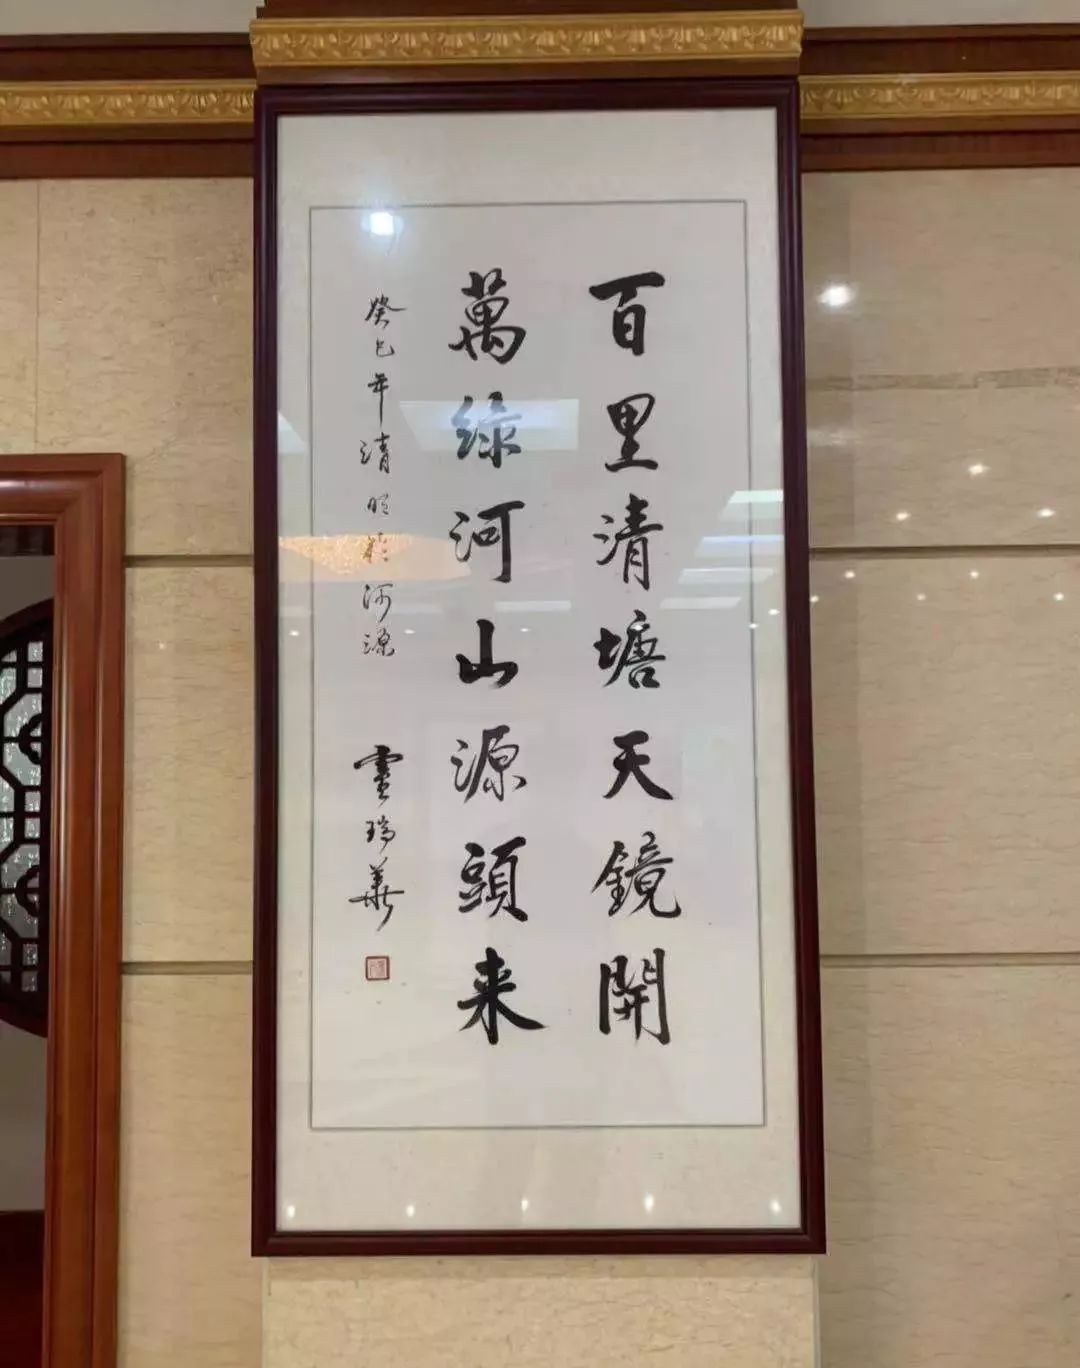 百里清塘天鏡開
萬绿河山源頭来
癸巳年清明於河源
瑞華